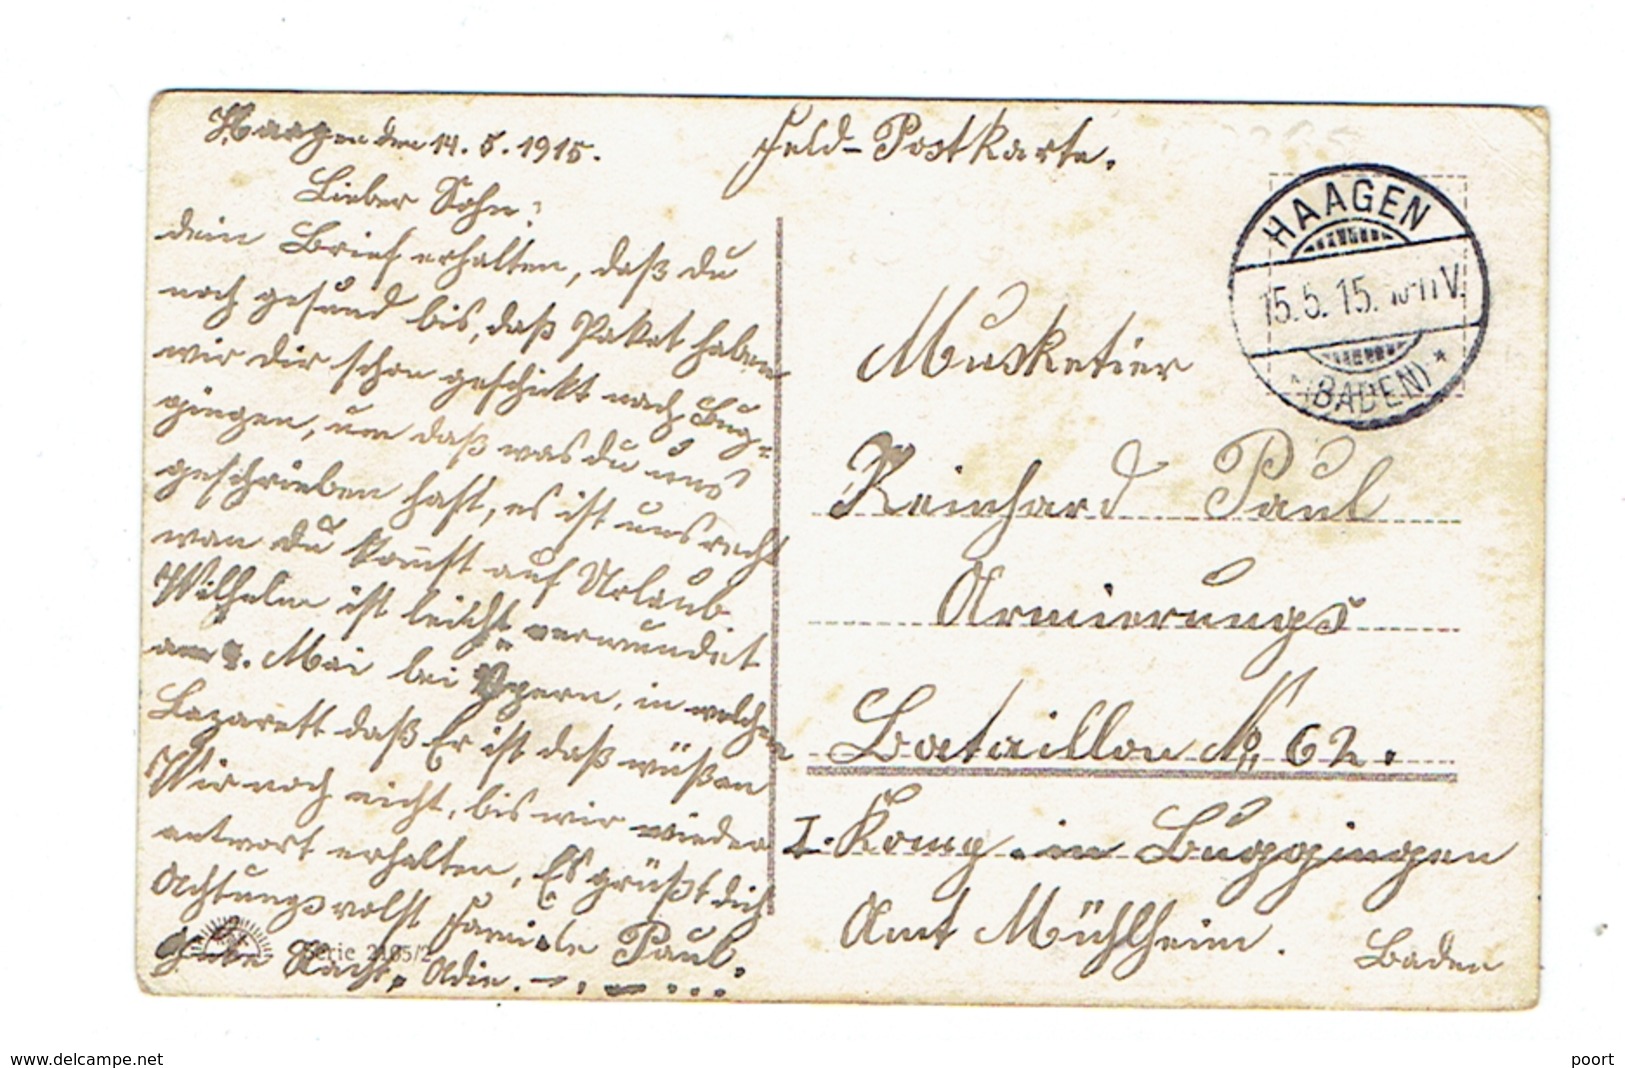 Haagen den 14. 5. 1915.
Lieber Sohn!
dein Brief erhalten, daß du
noch gesund bis, daß Paket haben
wir dir schon geschikt nach Bug-
gingen, um daß was du uns
geschrieben hast, es ist uns recht
wan du komst auf Urlaub.
Wilhelm ist leicht verwundet
am 9. Mai bei Ypern, in welchen
Lazarett daß Er ist daß wüßen
Wir noch nicht, bis wir wieder
antwort erhalten, Es grüßt dich
Achtungsvolst Familie Paul.
gute Nacht, Adie.
Serie 2165/2
Feld-Postkarte.
HAAGEN
15.5.15. 10-11V.
*(BADEN)*
Musketier
Reinhard Paul
Armierungs
Bataillon No. 62.
I. Komp. in Buggingen
Amt Mühlheim.
Baden
www.delcampe.net
poort